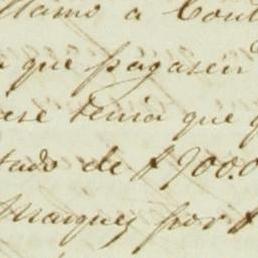 llamo a
que pagasen
ese tenia que
tado de $ 700.0
Marquez por $